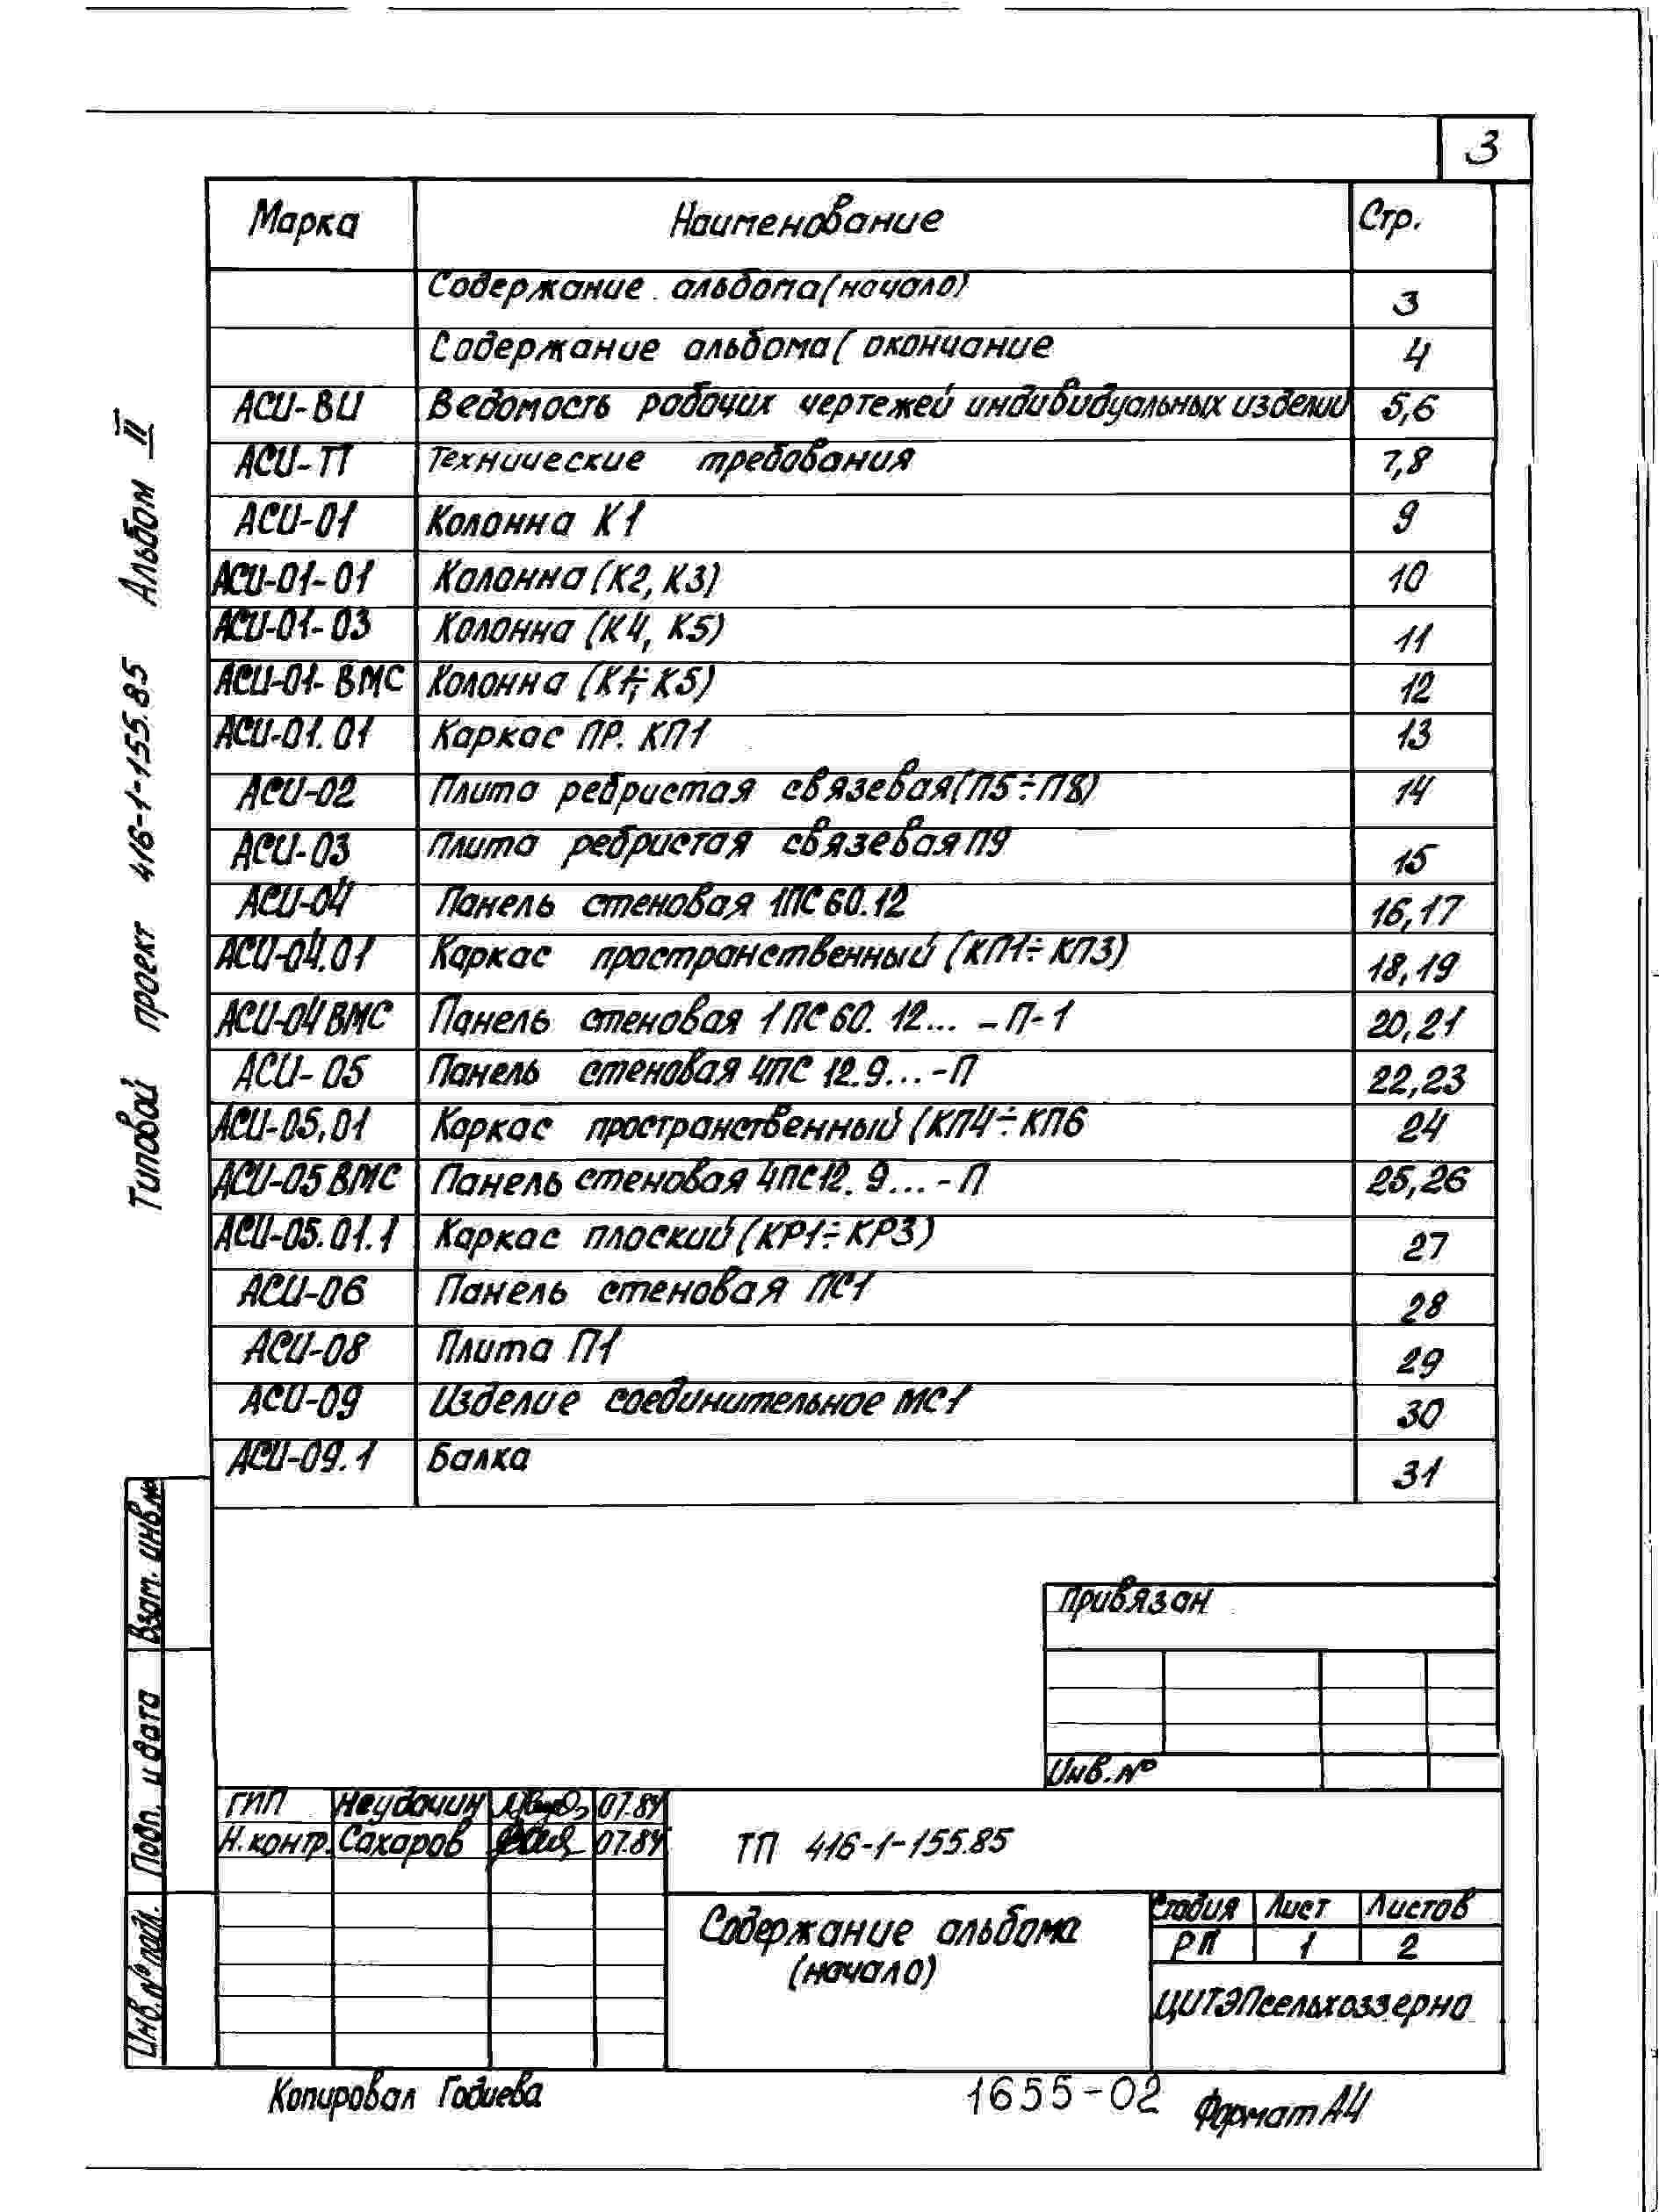 3
Марка Наименование Стр.
Содержание альбома (начало) 3
Содержание альбома ( окончание 4
АСИ-ВИ Ведомость рабочих чертежей индивидуальных изделий 5,6
АСИ-ТТ Технические требования 7,8
АСИ-01 Колонна К1 9
АСИ-01-01 Колонна (К2, К3) 10
АСИ-01-03 Колонна (К4, К5) 11
АСИ-01-ВМС Колонна (К1÷К5) 12
АСИ-01.01 Каркас ПР. КП1 13
АСИ-02 Плита ребристая связевая (П5÷П8) 14
АСИ-03 Плита ребристая связевая П9 15
АСИ-04 Панель стеновая 1ПС60.12 16,17
АСИ-04.01 Каркас пространственный (КП1÷КП3) 18,19
АСИ-04ВМС Панель стеновая 1ПС60. 12... -П-1 20,21
АСИ-05 Панель стеновая 4ПС 12.9...-П 22,23
АСИ-05,01 Каркас пространственный (КП4÷КП6 24
АСИ-05ВМС Панель стеновая 4ПС12. 9...-П 25,26
АСИ-05.01.1 Каркас плоский (КР1÷КР3) 27
АСИ-06 Панель стеновая ПС1 28
АСИ-08 Плита П1 29
АСИ-09 Изделие соединительное МС1 30
АСИ-09.1 Балка 31
Типовой проект 416-1-155.85 Альбом II
Взам. инв.№
Подп. и дата
Инв.№ подл.
Привязан
Инв.№
ГИП Неудачин 07.84
Н.контр. Сахаров 07.84
ТП 416-1-155.85
Содержание альбома
(начало)
Стадия Лист Листов
РП 1 2
ЦИТЭПсельхоззерно
Копировал Годиева
1655-02
Формат А4